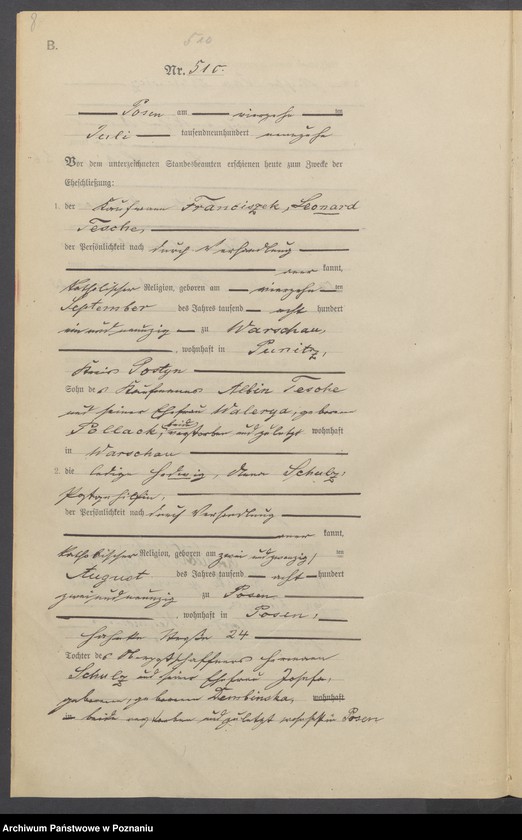 8
510
B.
Nr. 510.
Posen am vierzehn im
Juli tausendneunhundert neunzehn
Vor dem unterzeichneten Standesbeamten erschienen heute zum Zwecke der
Eheschließung:
1. der Kaufmann Franciszek, Leonard
Tesche,
der Persönlichkeit nach durch Verhandlung
aner kannt,
katholischer Religion, geboren am vierzehn ten
September des Jahres tausend acht hundert
ein und neunzig zu Warschau,
, wohnhaft in Punitz,
Kreis Gostyn
Sohn des Kaufmannes Albin Tesche
und seiner Ehefrau Walerya, geborenen
Pollack, beide verstorben und zuletzt wohnhaft
in Warschau
2. die ledige Hedwig, Schulz,
der Persönlichkeit nach durch Verhandlung
aner kannt,
katholischer Religion, geboren am zwei und zwanzig ten
August des Jahres tausend acht hundert
zwei und neunzig zu Posen
, wohnhaft in Posen,
24
Tochter des Hermann
Schulz und seiner Ehefrau Josefa,
geborenen Dembinska, wohnhaft
in beide verstorben und zuletzt wohnhaft in Posen
Archiwum Państwowe w Poznaniu
www.szukajwarchiwach.gov.pl